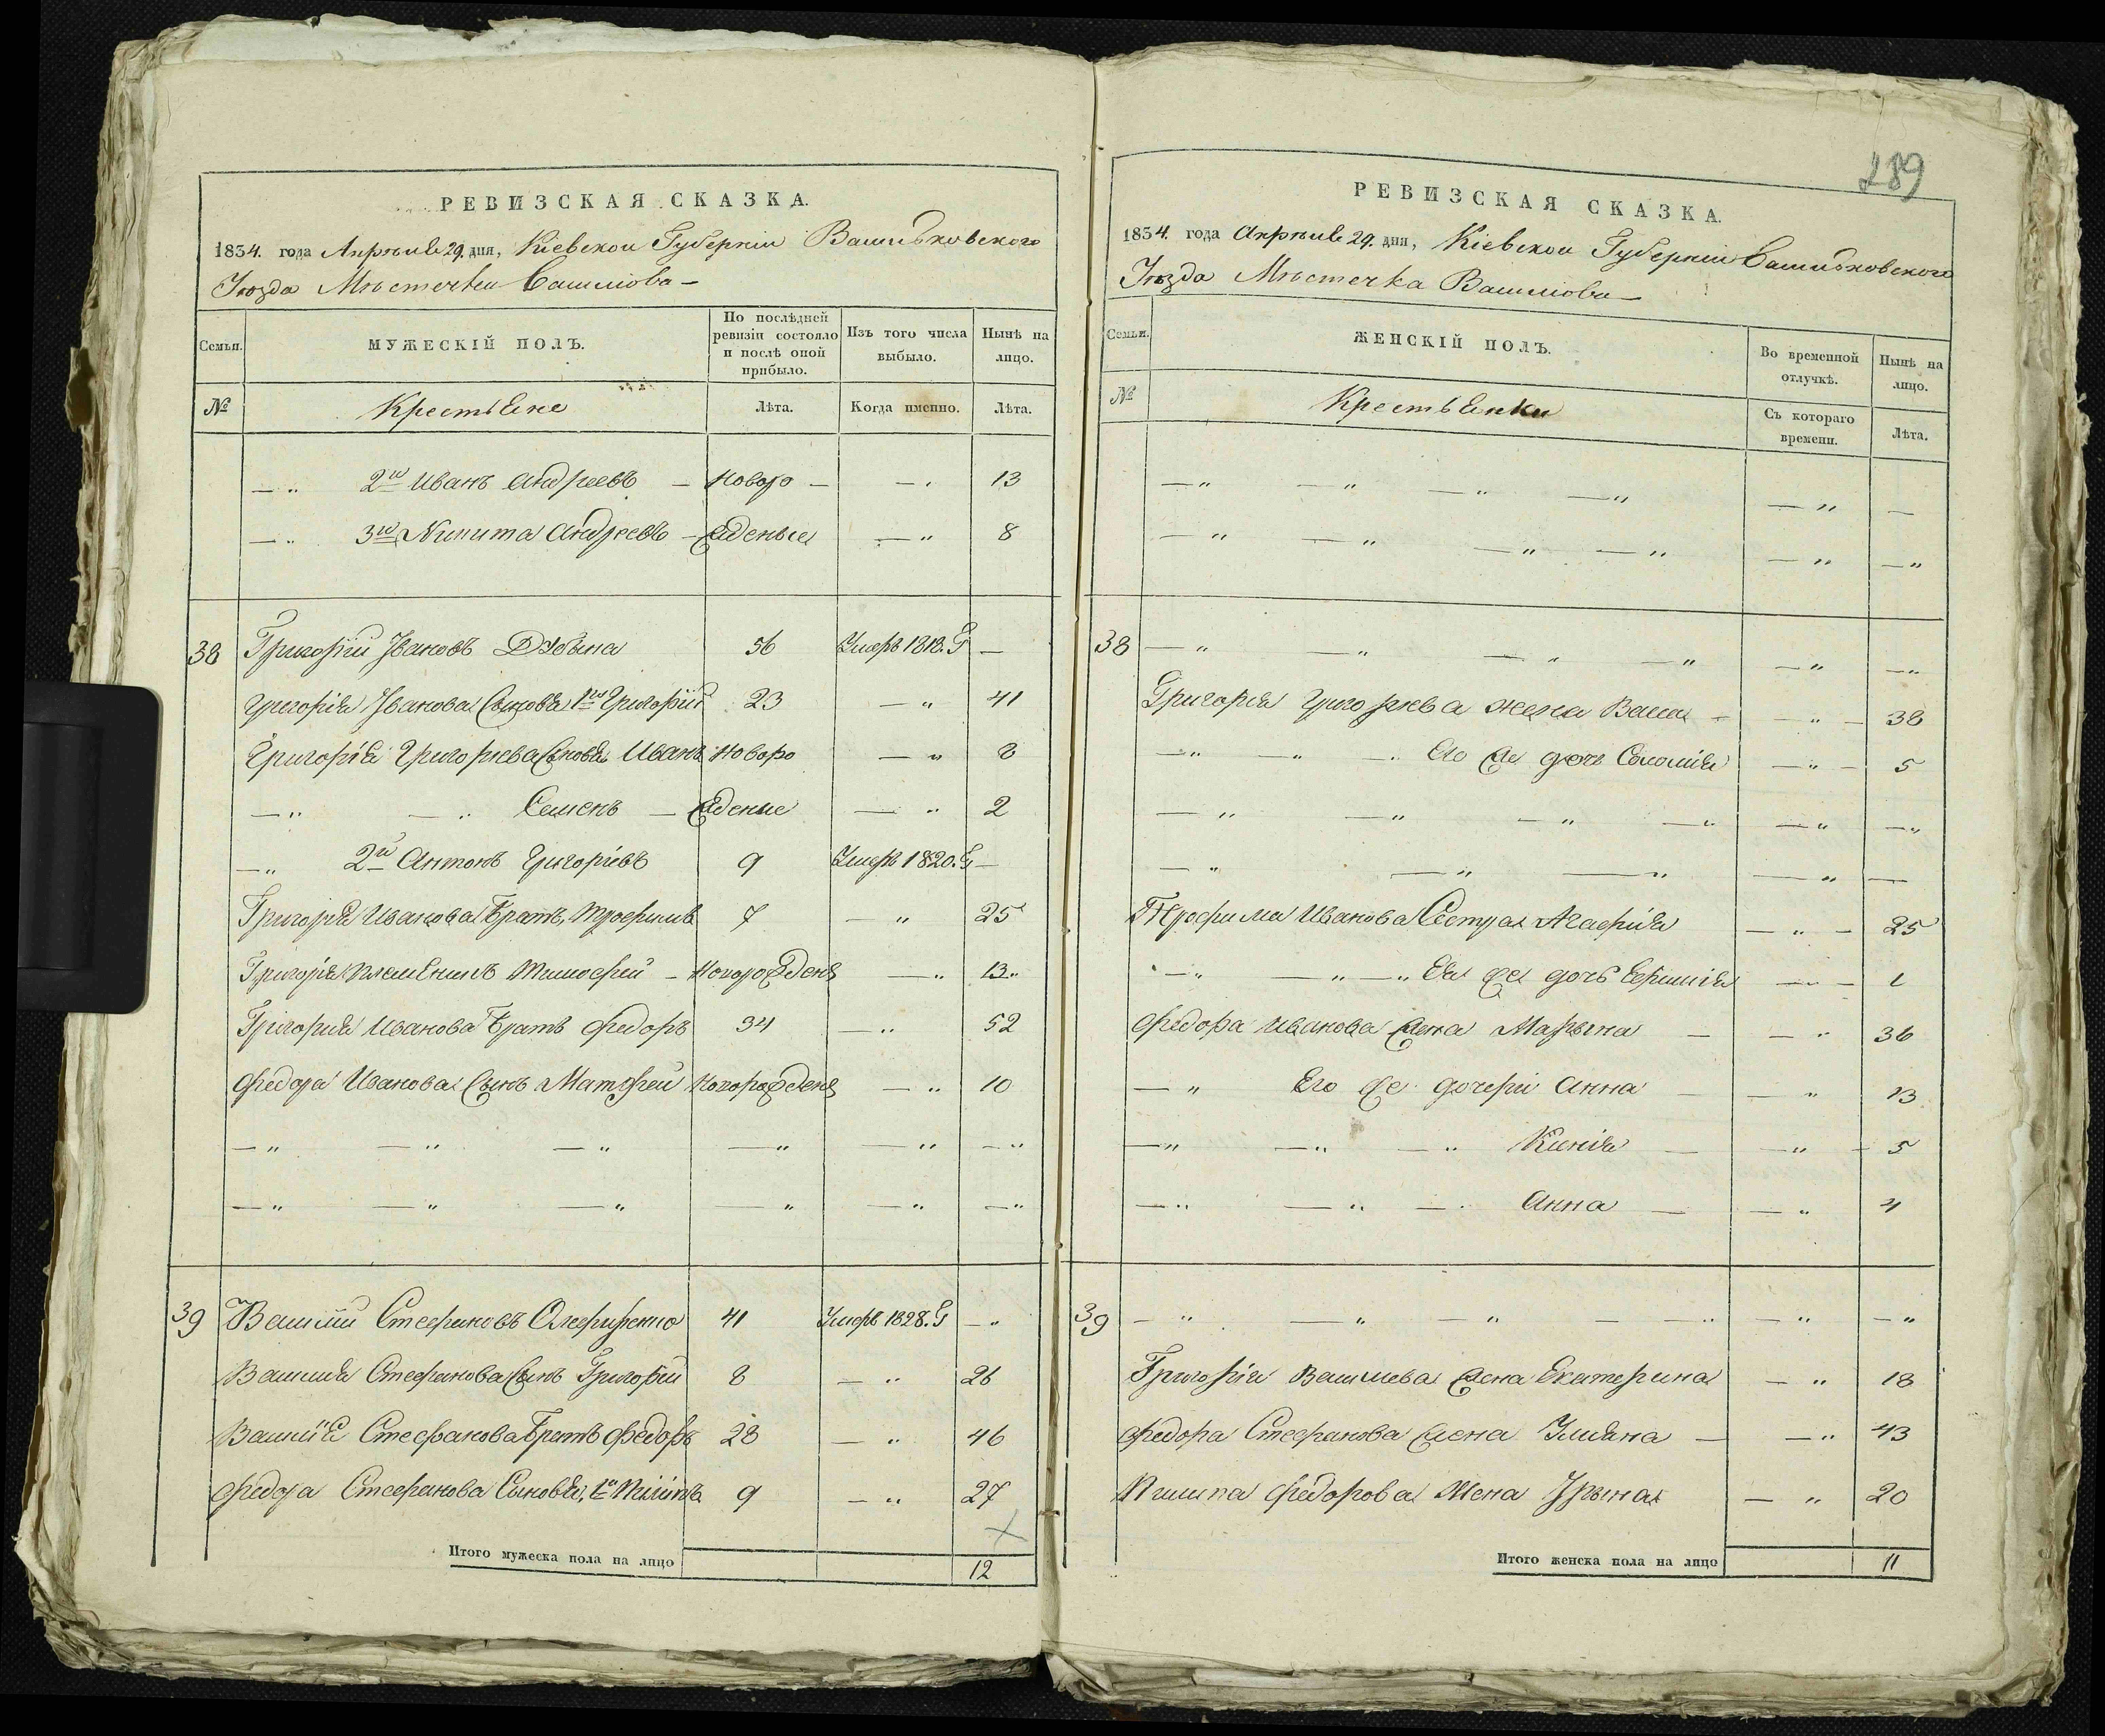 289
РЕВИЗСКАЯ СКАЗКА.
1834. года Апрѣля 29. дня, Кіевской Губерніи Васильковского
Уѣзда Мѣстечка
Семьи.
МУЖЕСКІЙ ПОЛЪ.
По послѣдней ревизіи состояло и послѣ оной прибыло.
Изъ того числа выбыло.
Нынѣ на лицо.
№
Крестьяне
Лѣта.
Когда именно.
Лѣта.
— „ 2й Иванъ Андреевъ — Новоро — — „ 13
— „ 3й Никита Андреевъ — жденые — „ 8
38 Григорій Ивановъ 56 Умеръ 1818. Г —
Григорія Иванова Сыновя 1й Григорій 23 — „ 41
Григорія Григорьева Сыновя Иванъ Новоро — „ 8
— „ — „ Семенъ — жденые — „ 2
— „ 2й Антонъ Григоріевъ 9 Умеръ 1820. Г —
Григорія Иванова Братъ, Трофимъ 7 — „ 25
Григорія Племяникъ Тимофей — Новорожденъ — „ 13„
Григория Иванова Братъ Федоръ 34 — „ 52
Федора Иванова Сынъ Матфей Новорожденъ — „ 10
— „ — „ — „ — „ — „ — „
— „ — „ — „ — „ — „ — „
39 Стефановъ 41 Умеръ 1828. Г — „
Стефанова Сынъ Григорій 8 — „ 26
Стефанова Братъ Федоръ 28 — „ 46
Федора Стефанова Сыновя, 1й 9 — „ 27
Итого мужеска пола на лицо 12
РЕВИЗСКАЯ СКАЗКА.
1834. года Апрѣля 29. дня, Кіевской Губерніи Васильковского
Уѣзда Мѣстечка
Семьи.
ЖЕНСКІЙ ПОЛЪ.
Во временной отлучкѣ.
Нынѣ на лицо.
№
Крестьянки
Съ котораго времени.
Лѣта.
— „ — „ — „ — „ — „ —
— „ — „ — „ — „ — „ — „
38 — „ — „ — „ — „ — „ — „
Григорія Григорьева жена — „ — 38
— „ — „ — „ Его же дочь Соломія — „ — 5
— „ — „ — „ — „ — „ — „
— „ — „ — „ — „ —
Трофима Иванова Сестра Агафія — „ — 25
— „ — „ — „ Ея же дочь — „ — 1
Федора Иванова жена Марына — — „ 36
— „ Его же дочери Анна — — „ 13
— „ — „ — „ Ксенія — — „ — 5
— „ — „ — „ Анна — — „ 4
39 — „ — „ — „ — — „ — „ — „
Григорія жена Екатерина — „ 18
Федора Стефанова жена Ульяна — — „ 43
Федорова Жена Ирына — „ 20
Итого женска пола на лицо 11